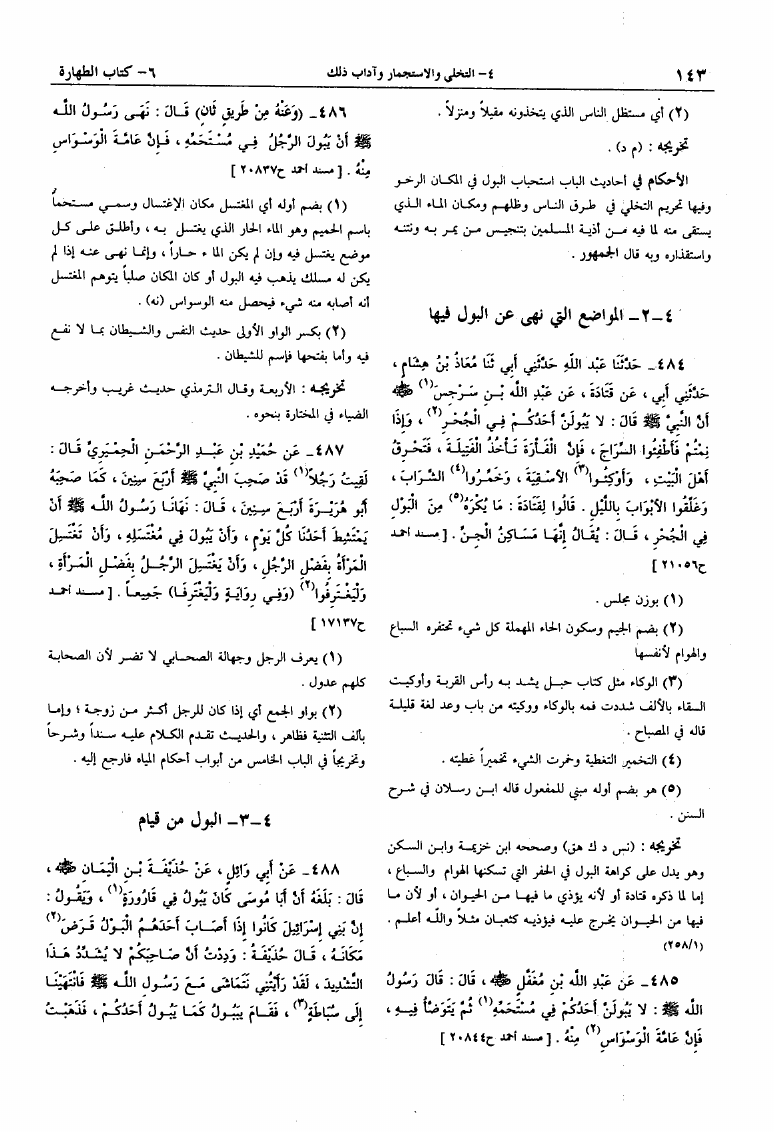 ١٤٣ ٤- التخلي والاستجمار وآداب ذلك ٦- كتاب الطهارة
(٢) أي مستظل الناس الذي يتخذونه مقيلاً ومنزلاً .
تخريجه : (م د) .
الأحكام في أحاديث الباب استحباب البول في المكان الرخو
وفيها تحريم التخلي في طرق الناس وظلهم ومكان الماء الذي
يستقى منه لما فيه من أذية المسلمين بتنجيس من يمر به ونتنه
واستقذاره وبه قال الجمهور .
٤-٢- المواضع التي نهى عن البول فيها
٤٨٤- حَدَّثَنَا عَبْد اللهِ حَدَّثَنِي أَبِي ثَنَا مُعَاذُ بْنُ هِشَامٍ ،
حَدَّثَنِي أَبِي ، عَن قَتَادَةَ ، عَن عَبْدِ اللهِ بْنِ سَرْجِسَ(١) ﷺ
أَنَّ النَّبِيَّ ﷺ قَالَ : لا يَبُولَنَّ أَحَدُكُمْ فِي الْجُحْرِ(٢) ، وَإِذَا
نِمْتُمْ فَأَطْفِئُوا السِّرَاجَ ، فَإِنَّ الْفَأْرَةَ تَأْخُذُ الْفَتِيلَةَ ، فَتَحْرِقُ
أَهْلَ الْبَيْتِ ، وَأَوْكِئُوا(٣) الأَسْقِيَةَ ، وَخَمِّرُوا(٤) الشَّرَابَ ،
وَغَلِّقُوا الأَبْوَابَ بِاللَّيْلِ . قَالُوا لِقَتَادَةَ : مَا يُكْرَهُ(٥) مِنَ الْبَوْلِ
فِي الْجُحْرِ ، قَالَ : يُقَالُ إِنَّهَا مَسَاكِنُ الْجِنِّ . [مسند احمد
ح٢١٠٥٦]
(١) بوزن مجلس .
(٢) بضم الجيم وسكون الحاء المهملة كل شيء تحتفره السباع
والهوام لأنفسها
(٣) الوكاء مثل كتاب حبل يشد به رأس القربة وأوكيت
السقاء بالألف شددت فمه بالوكاء ووكيته من باب وعد لغة قليلة
قاله في المصباح .
(٤) التخمير التغطية وخمرت الشيء تخميراً غطيته .
(٥) هو بضم أوله مبني للمفعول قاله ابن رسلان في شرح
السنن .
تخريجه : (نس د ك هق) وصححه ابن خزيمة وابن السكن
وهو يدل على كراهة البول في الحفر التي تسكنها الهوام والسباع ،
إما لما ذكره قتادة أو لأنه يؤذي ما فيها من الحيوان ، أو لأن ما
فيها من الحيوان يخرج عليه فيؤذيه كثعبان مثلاً والله أعلم .
(٢٥٨/١)
٤٨٥- عَن عَبْدِ اللهِ بْنِ مُغَفَّلٍ ﷺ ، قَالَ : قَالَ رَسُولُ
اللهِ ﷺ : لا يَبُولَنَّ أَحَدُكُمْ فِي مُسْتَحَمِّهِ(١) ثُمَّ يَتَوَضَّأُ فِيهِ ،
فَإِنَّ عَامَّةَ الْوَسْوَاسِ(٢) مِنْهُ . [مسند احمد ح٢٠٨٤٤]
٤٨٦- (وَعَنْهُ مِنْ طَرِيقٍ ثَانٍ) قَالَ : نَهَى رَسُولُ اللهِ
ﷺ أَنْ يَبُولَ الرَّجُلُ فِي مُسْتَحَمِّهِ ، فَإِنَّ عَامَّةَ الْوَسْوَاسِ
مِنْهُ . [مسند احمد ح٢٠٨٣٧]
(١) بضم أوله أي المغتسل مكان الإغتسال وسمي مستحماً
باسم الحميم وهو الماء الحار الذي يغتسل به ، وأطلق على كل
موضع يغتسل فيه وإن لم يكن الماء حاراً ، وإنما نهى عنه إذا لم
يكن له مسلك يذهب فيه البول أو كان المكان صلباً يتوهم المغتسل
أنه أصابه منه شيء فيحصل منه الوسواس (نه) .
(٢) بكسر الواو الأولى حديث النفس والشيطان بما لا نفع
فيه وأما بفتحها فإسم للشيطان .
تخريجه : الأربعة وقال الترمذي حديث غريب وأخرجه
الضياء في المختارة بنحوه .
٤٨٧- عَن حُمَيْدِ بْنِ عَبْدِ الرَّحْمَنِ الْحِمْيَرِيِّ قَالَ :
لَقِيتُ رَجُلاً(١) قَدْ صَحِبَ النَّبِيَّ ﷺ أَرْبَعَ سِنِينَ ، كَمَا صَحِبَهُ
أَبُو هُرَيْرَةَ أَرْبَعَ سِنِينَ ، قَالَ : نَهَانَا رَسُولُ اللهِ ﷺ أَنْ
يَمْتَشِطَ أَحَدُنَا كُلَّ يَوْمٍ ، وَأَنْ يَبُولَ فِي مُغْتَسَلِهِ ، وَأَنْ تَغْتَسِلَ
الْمَرْأَةُ بِفَضْلِ الرَّجُلِ ، وَأَنْ يَغْتَسِلَ الرَّجُلُ بِفَضْلِ الْمَرْأَةِ ،
وَلْيَغْتَرِفُوا(٢) (وَفِي رِوَايَةٍ وَلْيَغْتَرِفَا) جَمِيعاً . [مسند احمد
ح١٧١٣٧]
(١) يعرف الرجل وجهالة الصحابي لا تضر لأن الصحابة
كلهم عدول .
(٢) بواو الجمع أي إذا كان للرجل أكثر من زوجة ؛ وإما
بألف التثنية فظاهر ، والحديث تقدم الكلام عليه سنداً وشرحاً
وتخريجاً في الباب الخامس من أبواب أحكام المياه فارجع إليه .
٤-٣- البول من قيام
٤٨٨- عَنْ أَبِي وَائِلٍ ، عَنْ حُذَيْفَةَ بْنِ الْيَمَانِ ﷺ ،
قَالَ : بَلَغَهُ أَنَّ أَبَا مُوسَى كَانَ يَبُولُ فِي قَارُورَةٍ(١) ، وَيَقُولُ :
إِنَّ بَنِي إِسْرَائِيلَ كَانُوا إِذَا أَصَابَ أَحَدَهُمُ الْبَوْلُ قَرَضَ(٢)
مَكَانَهُ ، قَالَ حُذَيْفَةُ : وَدِدْتُ أَنَّ صَاحِبَكُمْ لا يُشَدِّدُ هَذَا
التَّشْدِيدَ ، لَقَدْ رَأَيْتُنِي نَتَمَاشَى مَعَ رَسُولِ اللهِ ﷺ فَانْتَهَيْنَا
إِلَى سُبَاطَةٍ(٣) ، فَقَامَ يَبُولُ كَمَا يَبُولُ أَحَدُكُمْ ، فَذَهَبْتُ